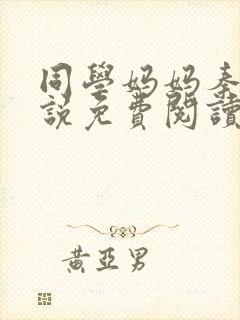 同學媽媽秦
說免費閱讀
黃亞男